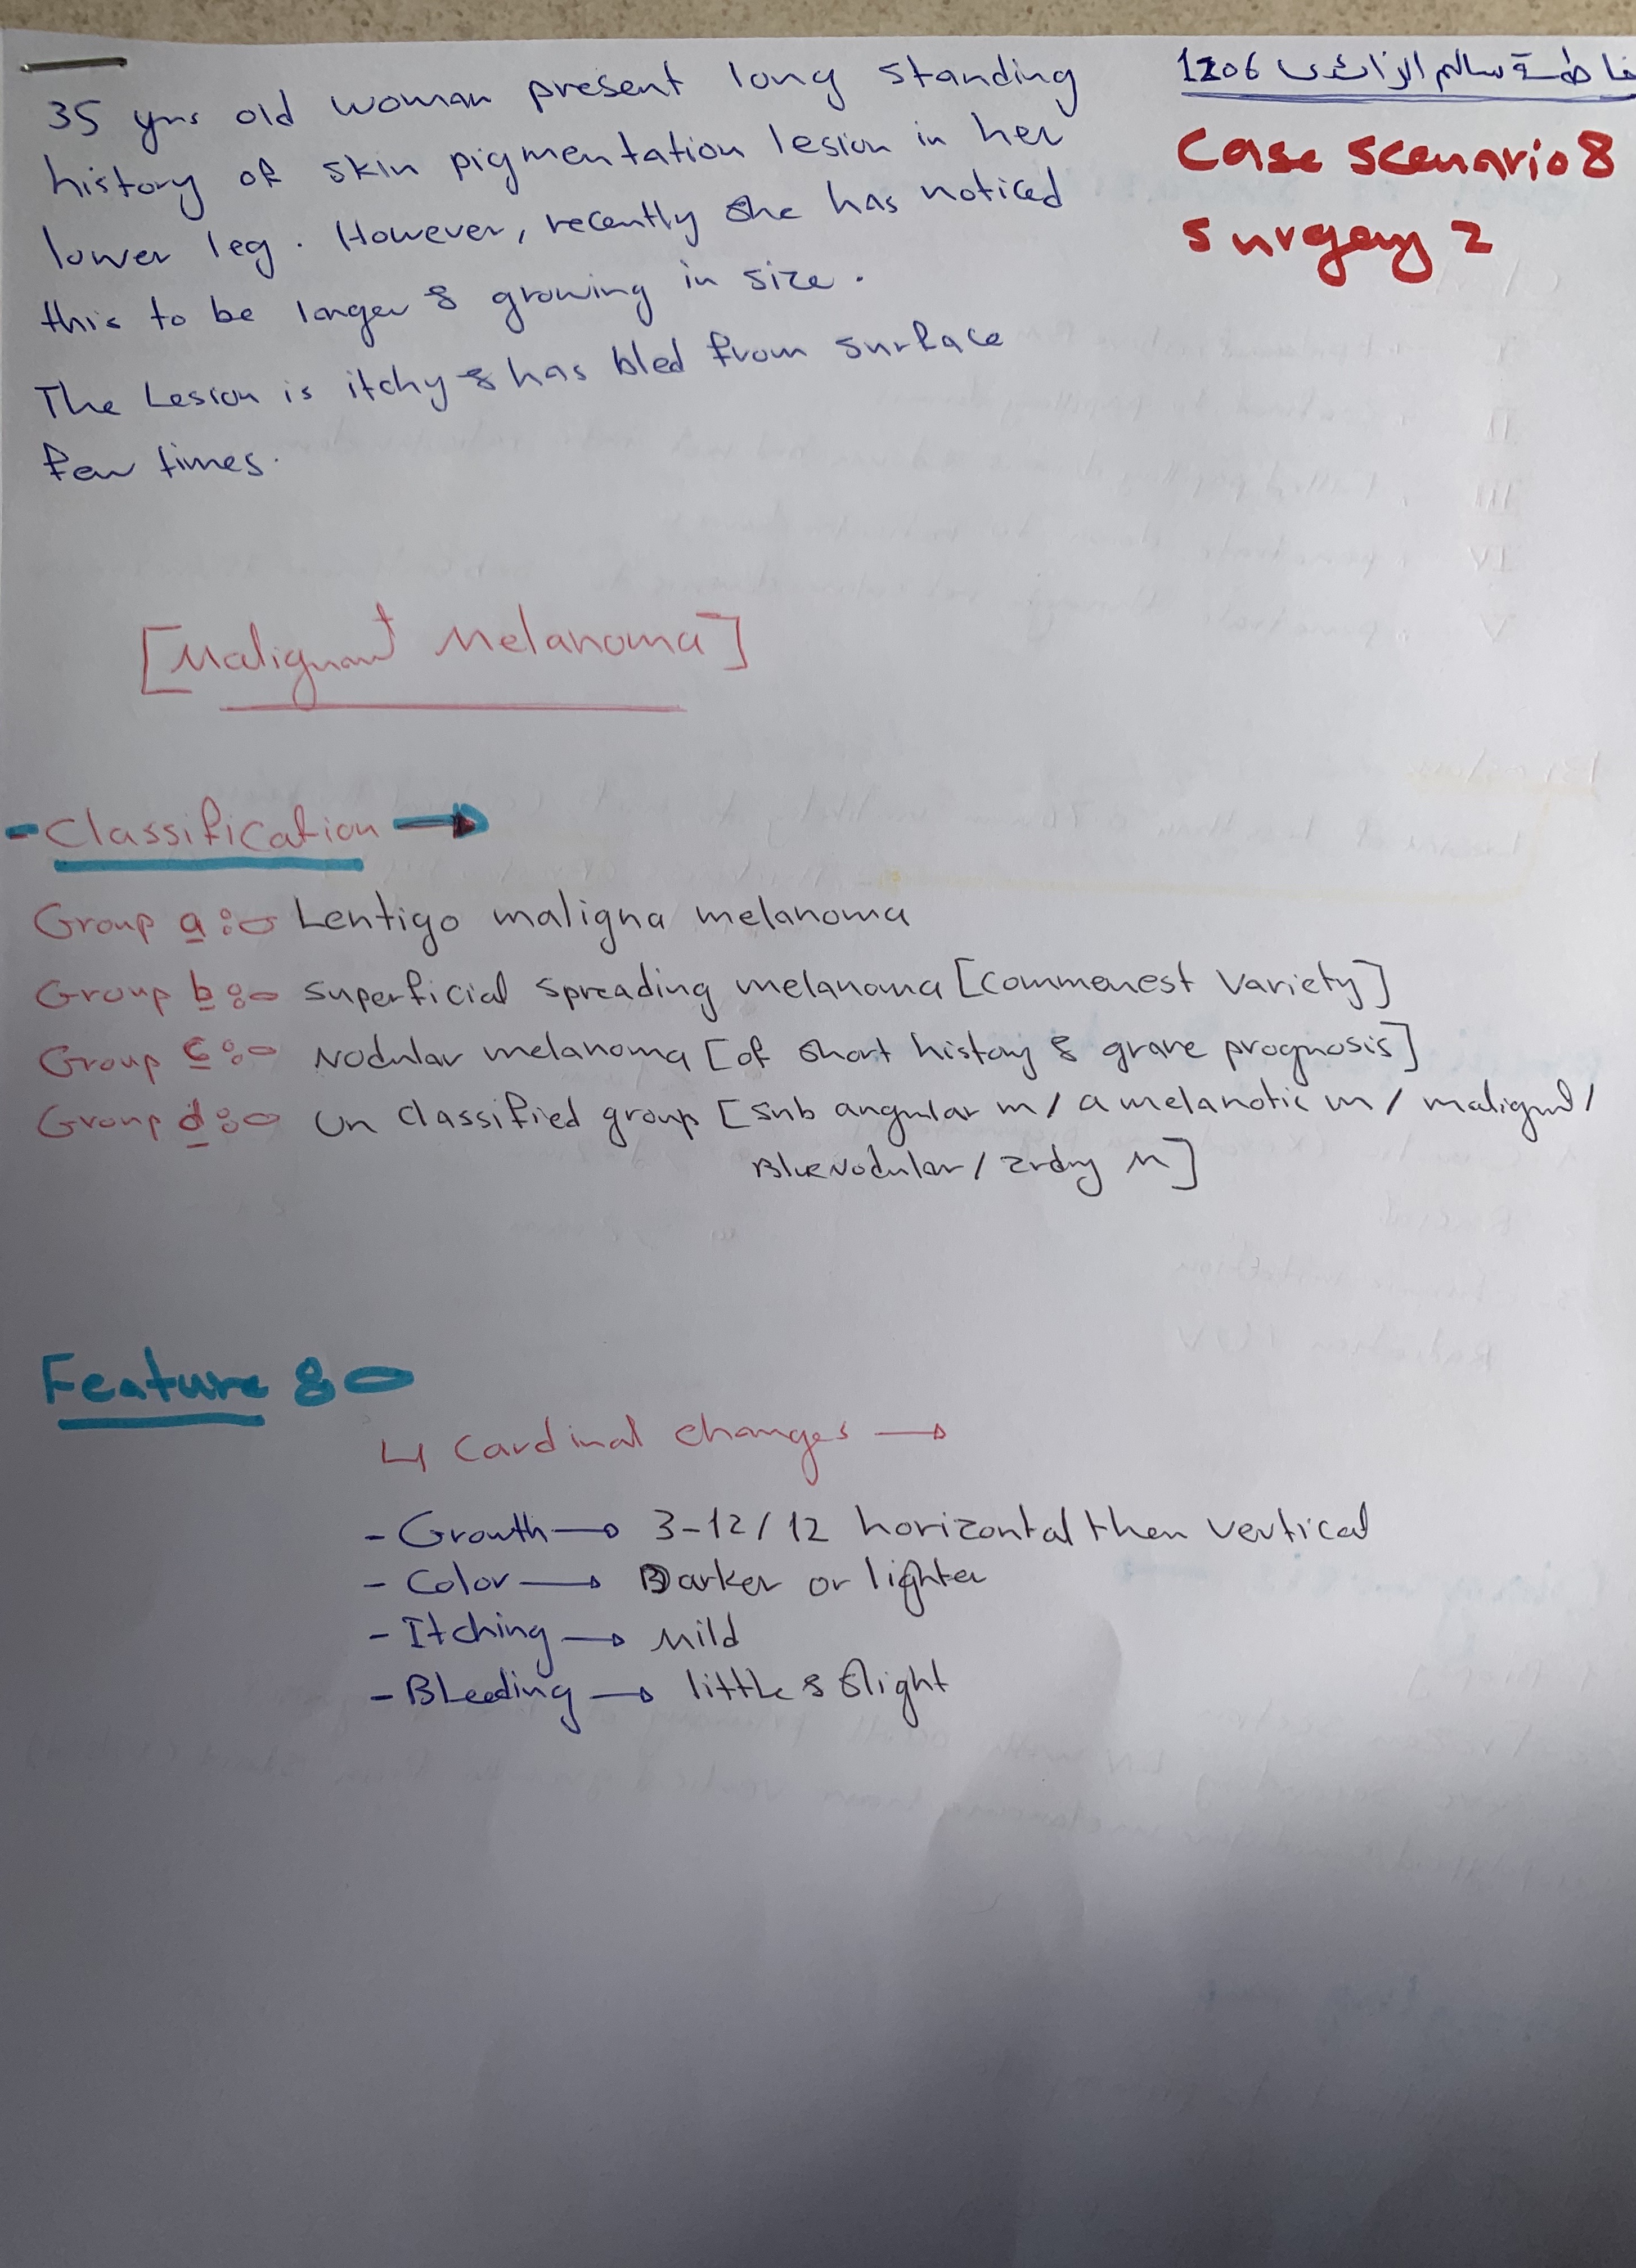 فاطمة سالم الزائدى 1206
Case Scenario 8
Surgery 2
35 yrs old woman present long standing
history of skin pigmentation lesion in her
lower leg. However, recently she has noticed
this to be larger & growing in size.
The Lesion is itchy & has bled from surface
few times.
[Malignant Melanoma]
- Classification →
Group a:- Lentigo maligna melanoma
Group b:- Superficial spreading melanoma [Commenest Variety]
Group c:- Nodular melanoma [of short history & grave prognosis]
Group d:- Un classified group [Sub angular m/ amelanotic m/ malignt/
BlueNodular/ 2rdry M]
Feature :-
4 Cardinal changes →
- Growth → 3-12/12 horizontal then vertical
- Color → Darker or lighter
- Itching → Mild
- Bleeding → little & slight